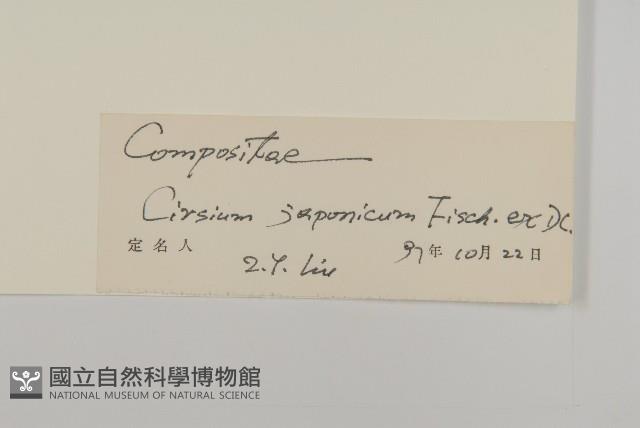 Compositae
Cirsium japonicum Fisch. ex DC.
定名人 Z.Y. Liu 97年10月22日
國立自然科學博物館
NATIONAL MUSEUM OF NATURAL SCIENCE